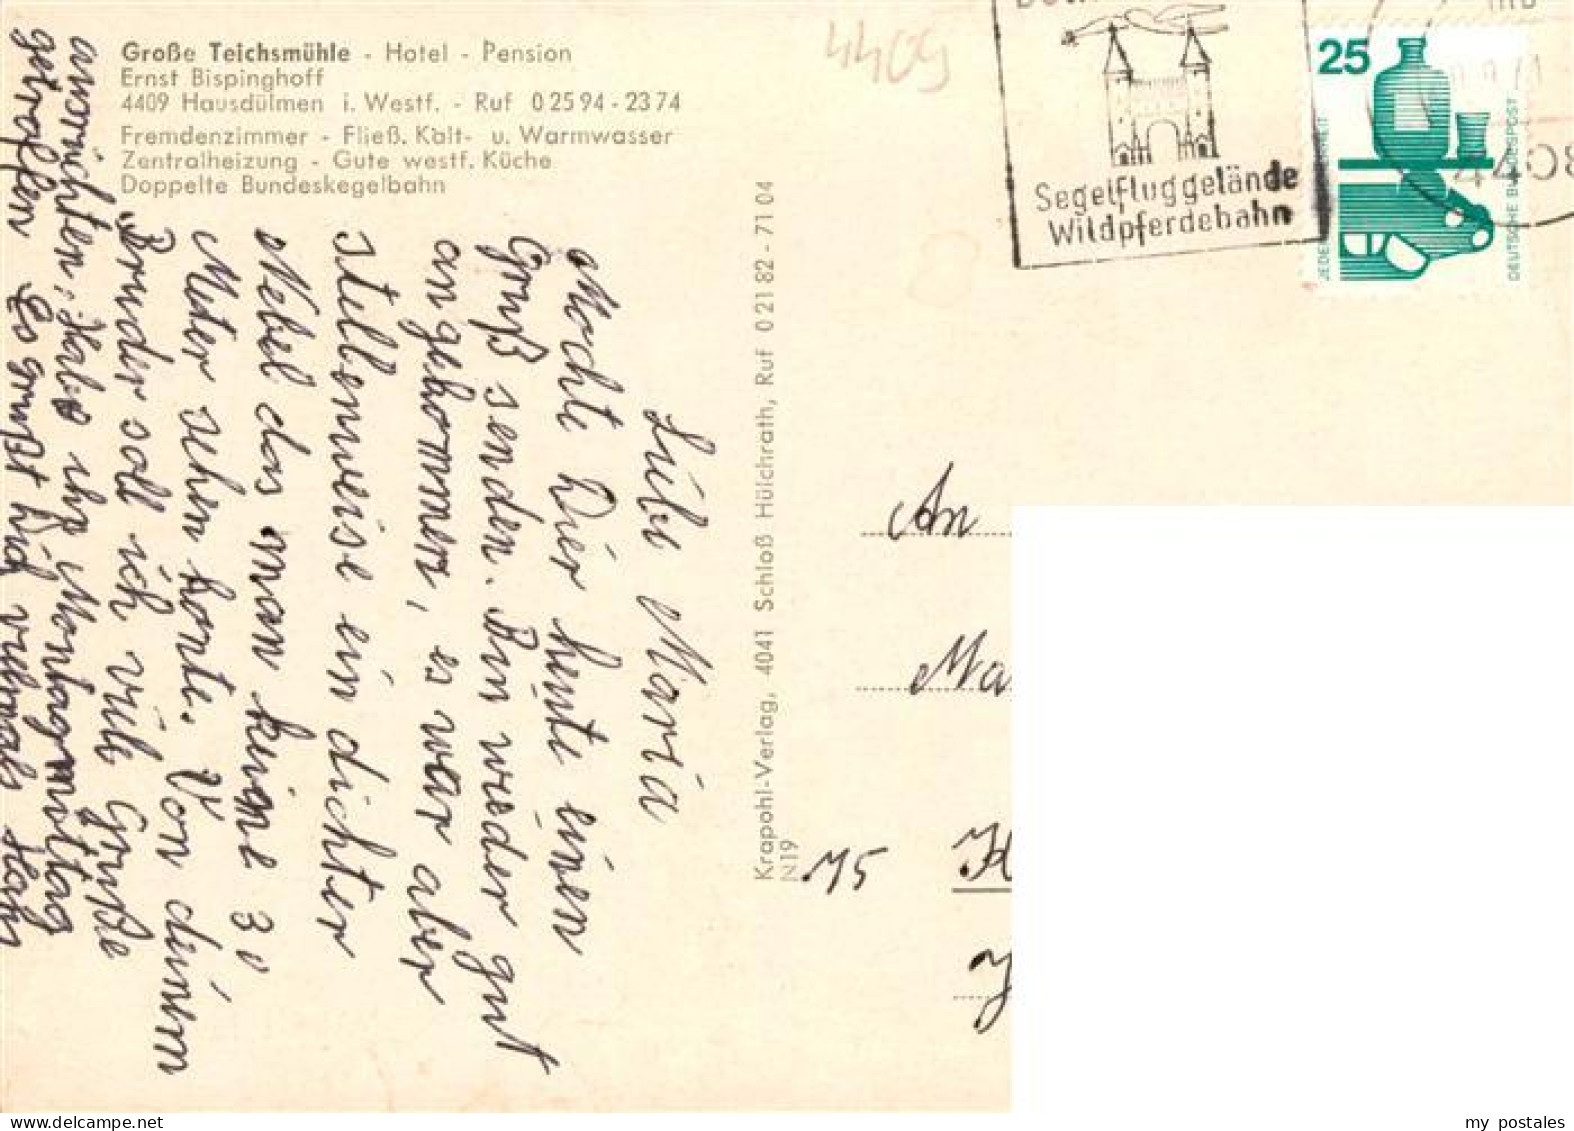 Große Teichsmühle - Hotel - Pension
Ernst Bispinghoff
4409 Hausdülmen i. Westf. - Ruf 0 25 94 - 23 74
Fremdenzimmer - Fließ. Kalt- u. Warmwasser
Zentralheizung - Gute westf. Küche
Doppelte Bundeskegelbahn
4409
Segelfluggelände
Wildpferdebahn
25
4408
DEUTSCHE BUNDESPOST
Liebe Maria
Möchte Dier heute einen
Gruß senden. Bin wieder gut
angekommen, es war aber
stellenweise ein dichter
Nebel das man keine 30
Meter sehen konte. Von deinem
Bruder soll ich viele Grüße
ausrichten. Habe ihn Montagmittag
getroffen Es grüßt Dich vielmals
Krapohl-Verlag, 4041 Schloß Hülchrath, Ruf 0 21 82 - 71 04
N 19
An
Ma
75 H